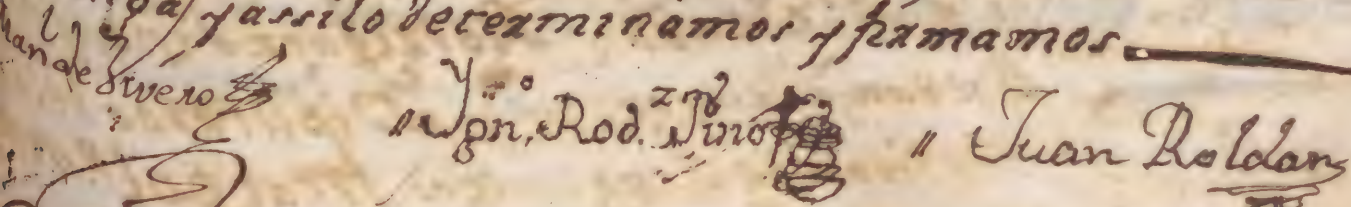 y assi lo determinamos y firmamos
de Rivero
Ygn.º Rod.z
Juan Roldan